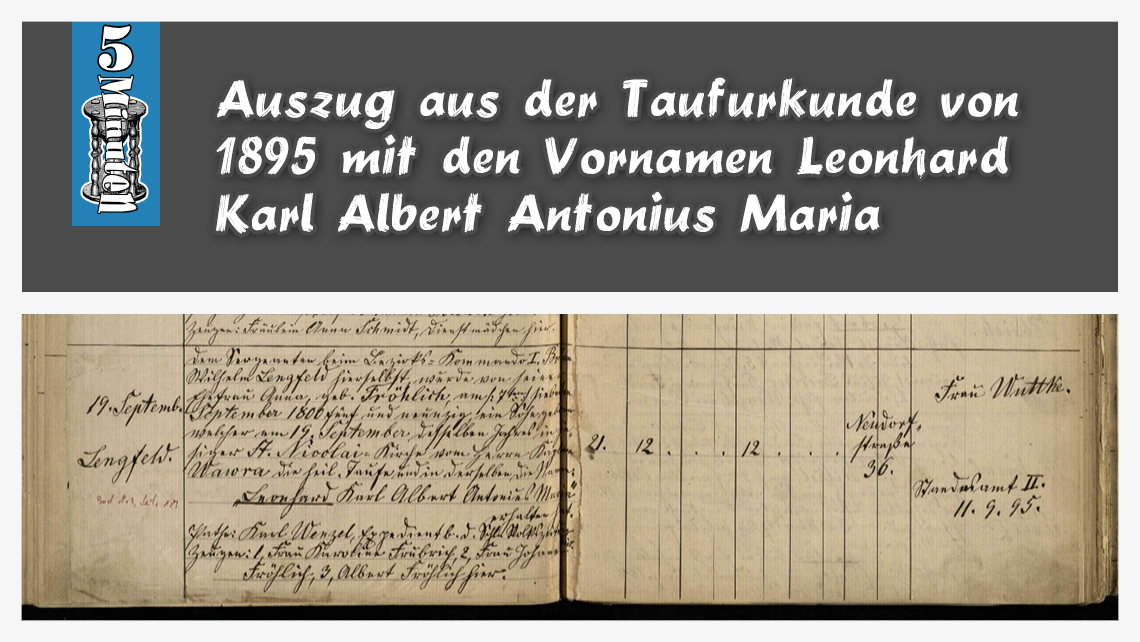 5 Minuten
Auszug aus der Taufurkunde von
1895 mit den Vornamen Leonhard
Karl Albert Antonius Maria
Zeugen: Fräulein Anna Schmidt, Dienstmädchen hier.
19. Septemb.
Lengfeld.
Dem Sergeanten beim Bezirks-Kommando I.
Wilhelm Lengfeld hierselbst, wurde von seiner
Ehefrau Anna, geb. Fröhlich, am
September 1800 fünf und neunzig ein Sohn
welcher am 19. September desselben Jahres in
siger St. Nicolai-Kirche vom Herrn
Wawora die heil. Taufe und in derselben die
Leonhard Karl Albert Antonius Maria
erhalten
Pathe: Karl Wenzel, Expedient b. d.
Zeugen: 1, Frau Karoline 2, Frau
Fröhlich, 3, Albert Fröhlich hier.
21. 12 . . . 12 . . .
Neudorf-
straße
36.
Frau Wuttke.
Standesamt II.
11. 9. 95.